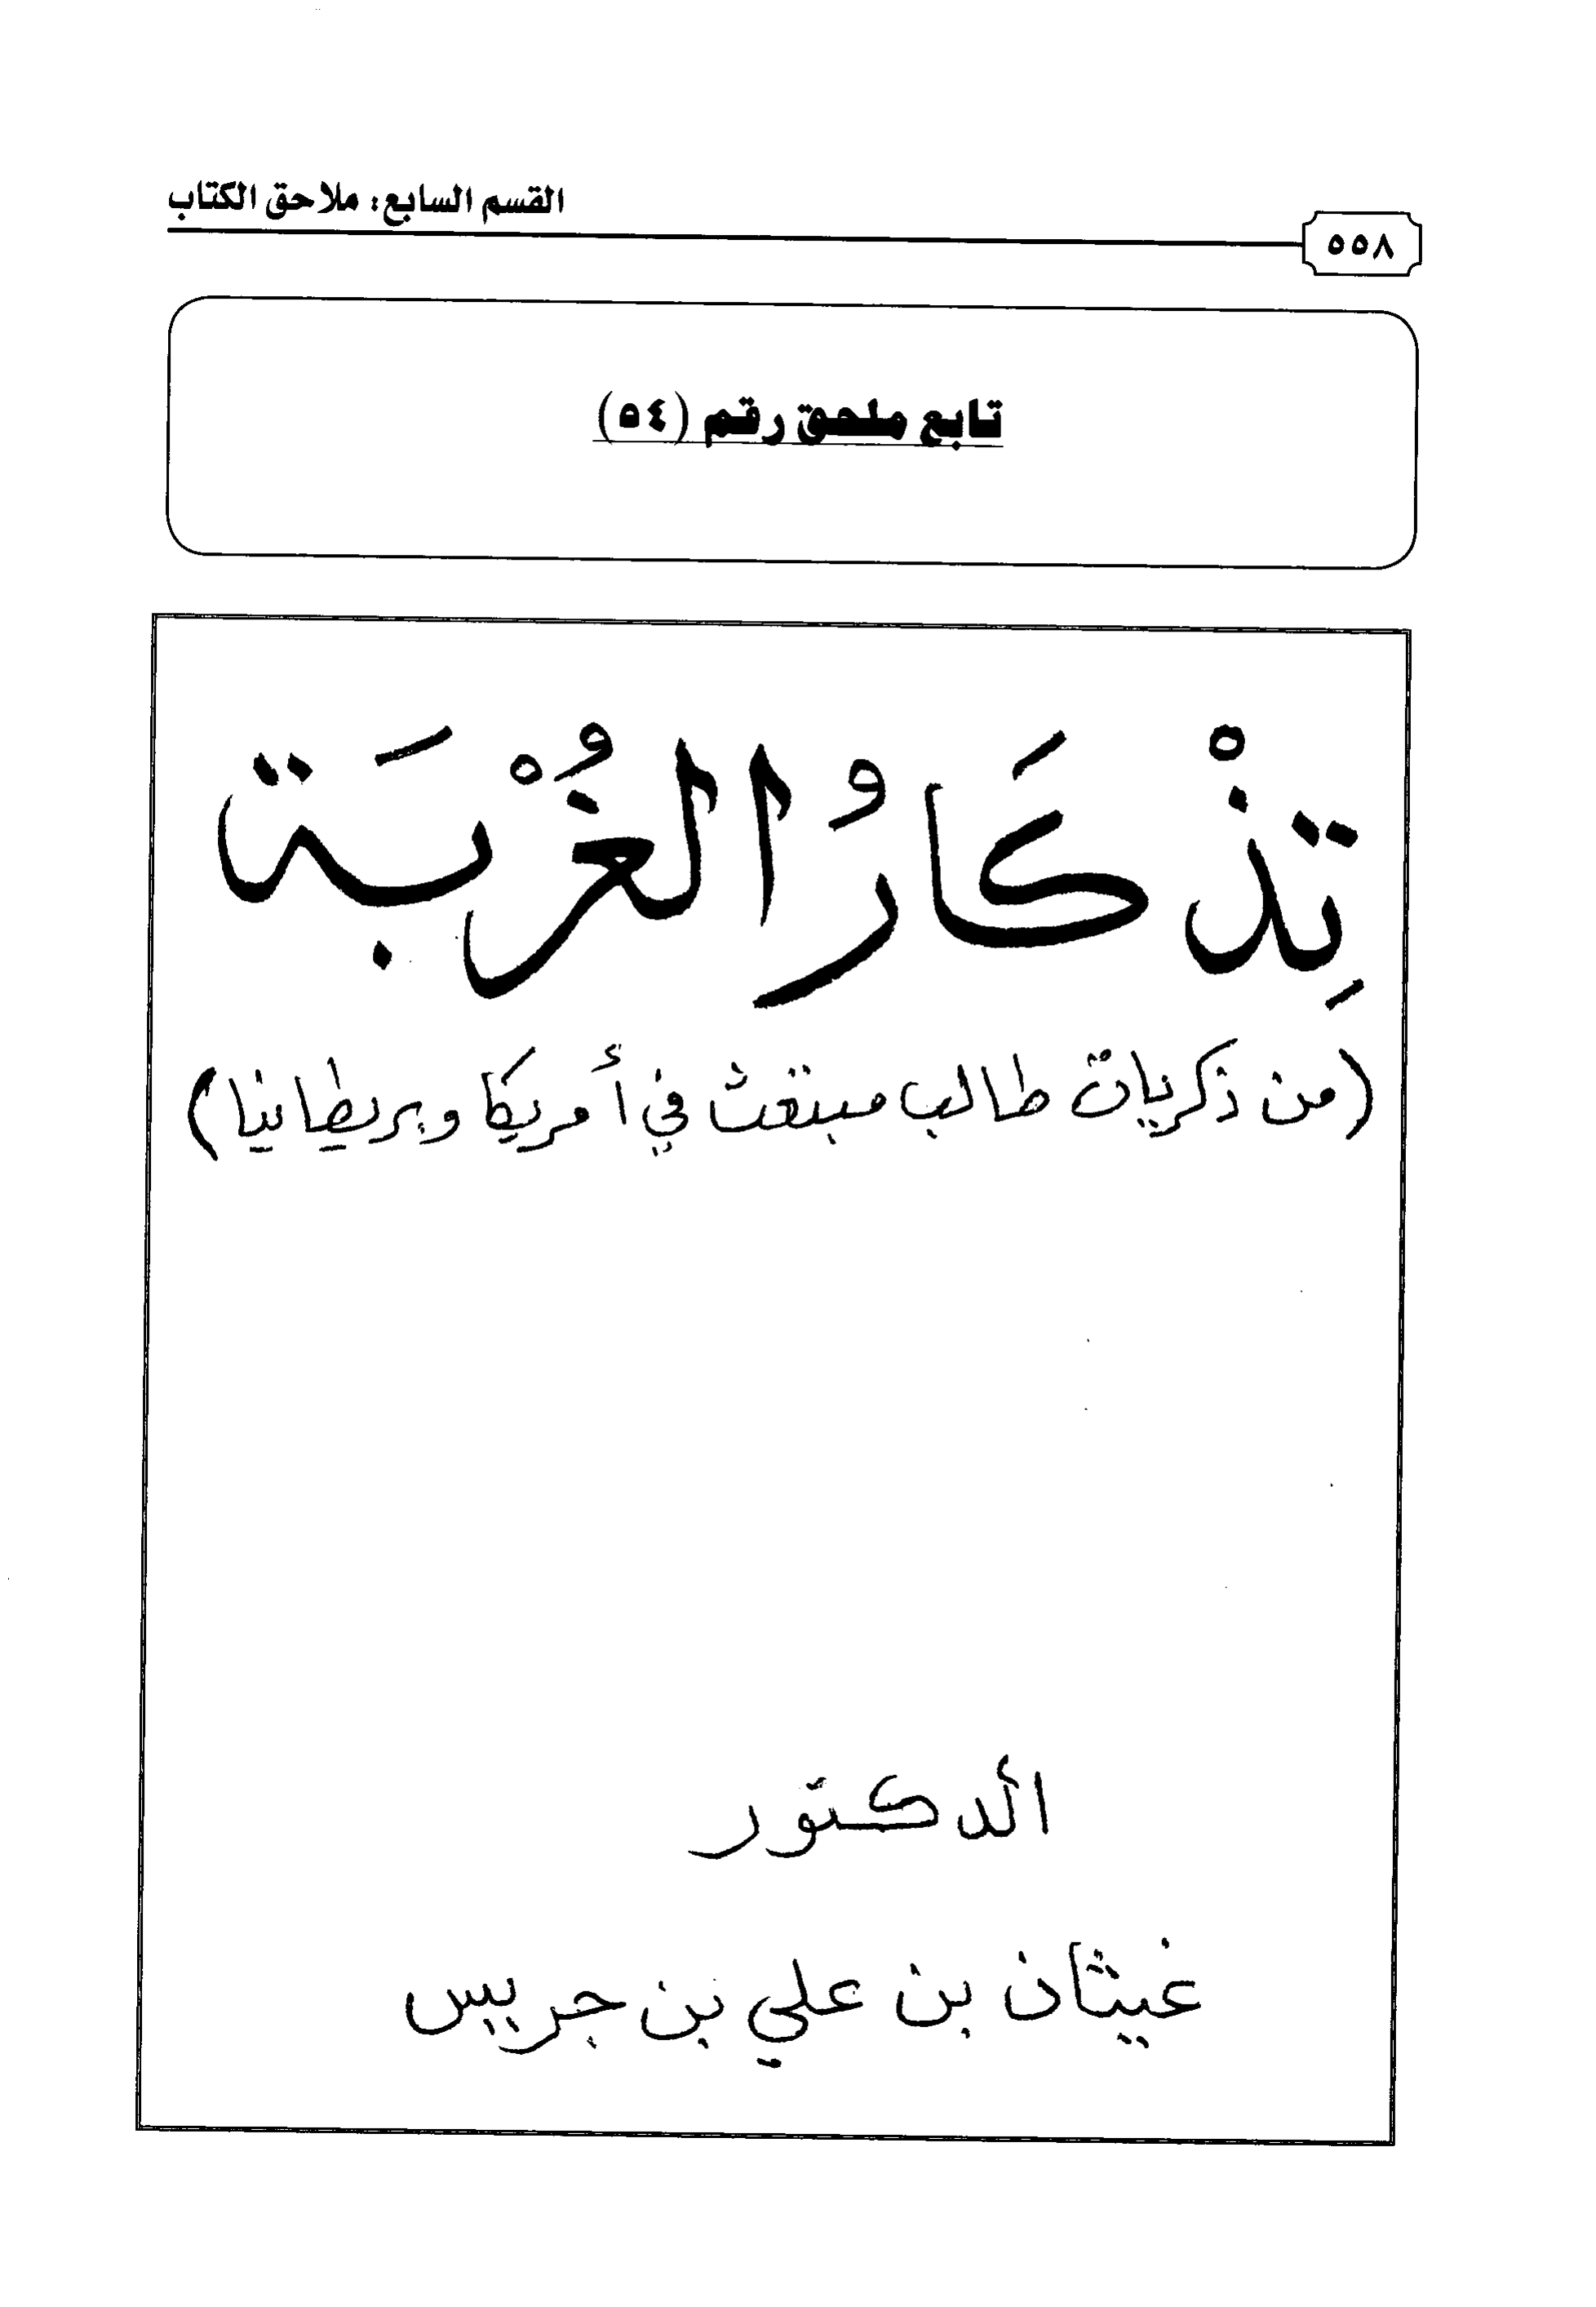 القسم السابع: ملاحق الكتاب
٥٥٨
تابع ملحق رقم (٥٤)
تِذْكَارُ الغُرْبَة
(من ذكريات طالب مبتعث في أمريكا وبريطانيا)
الدكتور
غيثان بن علي بن جريس